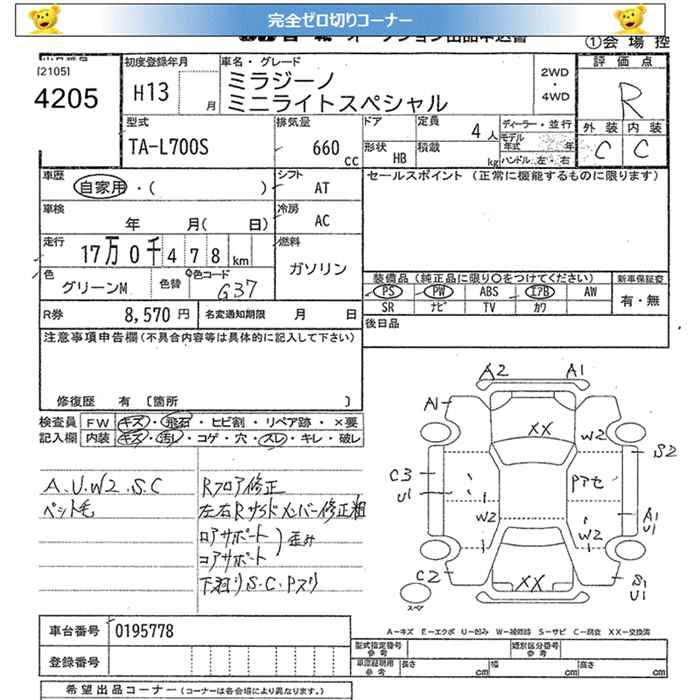 完全ゼロ切りコーナー
①会 場 控
[2105]
4205
初度登録年月
H13
月
車名・グレード
ミラジーノ
ミニライトスペシャル
2WD
・
4WD
評 価 点
R
外 装 内 装
C C
型式
TA-L700S
排気量
660 cc
ドア
形状 HB
定員 4 人
積載 kg
ディーラー・並行
モデル
年式
ハンドル 左・右
車歴
自家用・( )
シフト
AT
セールスポイント (正常に機能するものに限ります)
車検
年 月( 日)
冷房
AC
走行
17万0千478km
燃料
ガソリン
色
グリーンM
色替
色コード
G37
装備品 (純正品に限り○をつけてください)
新車保証書
PS PW ABS エアB AW
SR ナビ TV カワ
有・無
R券 8,570 円
名変通知期限 月 日
後日品
注意事項申告欄 (不具合内容等は具体的に記入して下さい)
修復歴 有 〔箇所 〕
検査員
記入欄
FW キズ・飛石・ヒビ割・リペア跡・×要
内装 キズ・汚レ・コゲ・穴・スレ・キレ・破レ
A.U.W2.S.C
ペット毛
Rフロア修正
左右Rサイドメンバー修正粗
ロアサポート
コアサポート
歪み
下廻りS.C.Pスリ
A2 A1
A1
XX
W2
S2
C3
U1
Pアセ
W2
W2
A1
U1
C2
XX
S1
U1
スペア
A-キズ E-エクボ U-凹み W-補修跡 S-サビ C-腐食 XX-交換済
車台番号 0195778
登録番号
型式指定番号
参 考
類別区分番号
参 考
車庫証明用
参 考
長さ cm
幅 cm
高さ cm
希望出品コーナー (コーナーは各会場により異なります。)